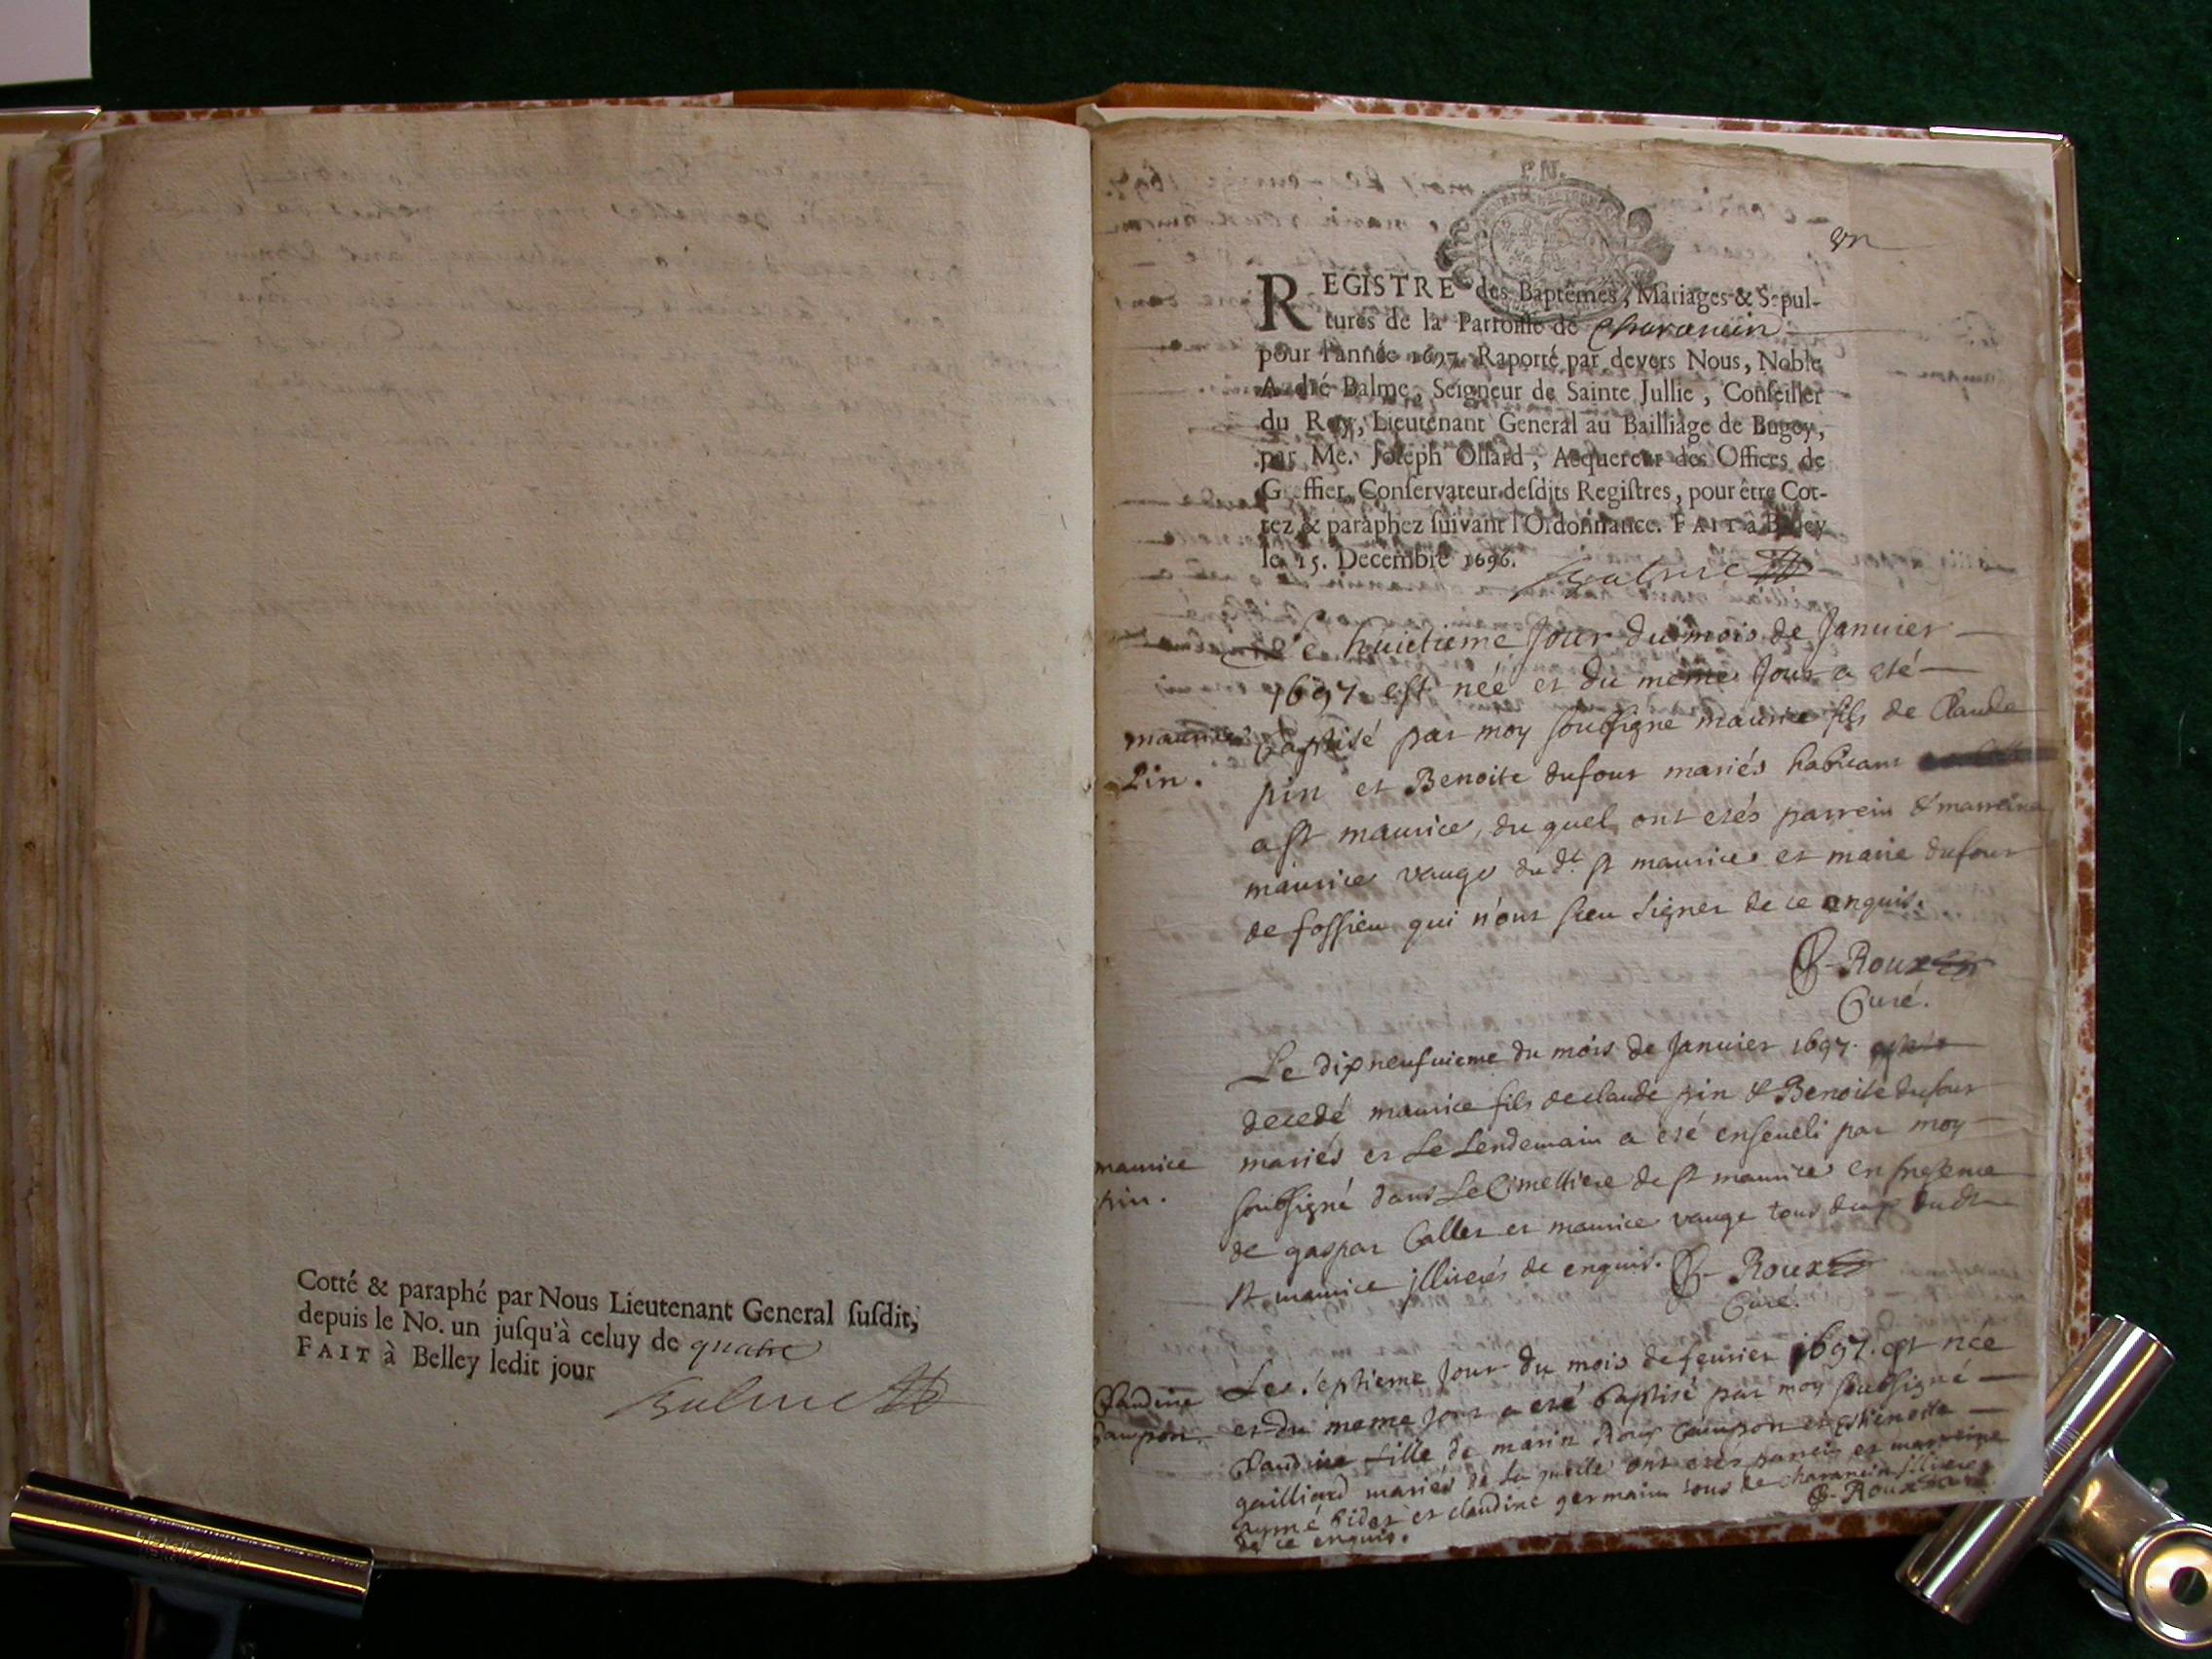 Cotté & paraphé par Nous Lieutenant General susdit,
depuis le No. un jusqu'à celuy de quatre
FAIT à Belley ledit jour
Balme
un
REGISTRE des Baptêmes, Mariages & Sepul-
tures de la Parroisse de Charancin
pour l'année 1697. Raporté par devers Nous, Noble
André Balme, Seigneur de Sainte Jullie, Conseiller
du Roy, Lieutenant General au Bailliage de Bugey,
par Me. Joseph Ollard, Acquereur des Offices de
Greffier, Conservateur desdits Registres, pour être Cot-
tez & paraphez suivant l'Ordonnance. FAIT à Belley
le 15. Decembre 1696.
Balme
Le huictieme Jour du mois de Januier
1697 est néé et du méme Jour a eté
maurice
pin.
baptisé par moy soubsigné maurice fils de Claude
pin et Benoite dufour mariés habitans
a st maurice, du quel ont etés parrein & marreine
maurice vauge du dt. st maurice et marie dufour
de fossieu qui n'ont sceu signer de ce enquis.
Roux
Curé.
Le dixneufuieme du mois de Januier 1697.
decedé maurice fils de claude pin & Benoite dufour
maurice
pin.
mariés et Le Lendemain a eté enseueli par moy
soubsigné dans Le Cimettiere de st maurice en presence
de gaspar Caller et maurice vauge tous deux dudt
st maurice illiterés de enquis. Roux
Curé.
Le septieme Jour du mois de feurier 1697. est née
Claudine
Campon.
et du meme Jour a eté baptisé par moy soubsigné
Claudine fille de marin Roux Campon et Esthienette
gailliard mariés de La quelle ont etés parrein et marreine
aymé bidat et claudine germain tous de charancin illiterés
de ce enquis.
Roux Curé.